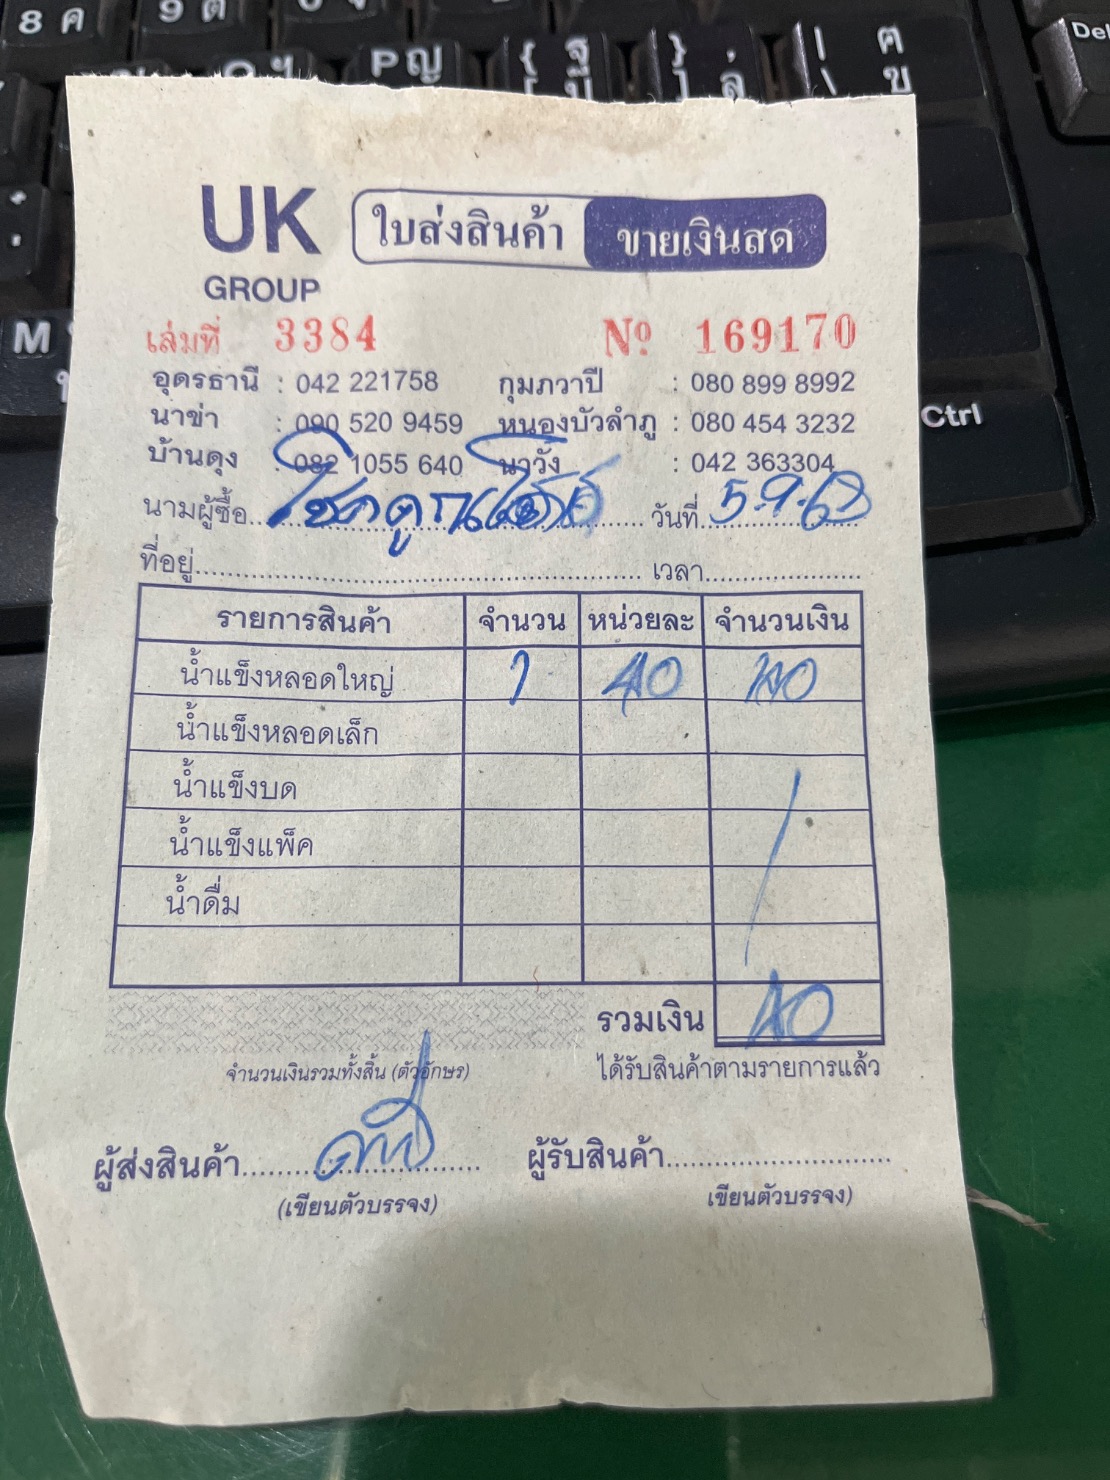 8 ค 9 ต
P ญ { ฐ } | ฅ
[ บี ] ล่ \ ข
Del
M
Ctrl
UK ใบส่งสินค้า ขายเงินสด
GROUP
เล่มที่ 3384 Nº 169170
อุดรธานี : 042 221758 กุมภวาปี : 080 899 8992
นาข่า : 090 520 9459 หนองบัวลำภู : 080 454 3232
บ้านดุง : 082 1055 640 นาวัง : 042 363304
นามผู้ซื้อ วันที่ 5-9-68
ที่อยู่ เวลา
รายการสินค้า จำนวน หน่วยละ จำนวนเงิน
น้ำแข็งหลอดใหญ่ 1 40 40
น้ำแข็งหลอดเล็ก
น้ำแข็งบด
น้ำแข็งแพ็ค
น้ำดื่ม
รวมเงิน 40
จำนวนเงินรวมทั้งสิ้น (ตัวอักษร) ได้รับสินค้าตามรายการแล้ว
ผู้ส่งสินค้า ผู้รับสินค้า
(เขียนตัวบรรจง) เขียนตัวบรรจง)